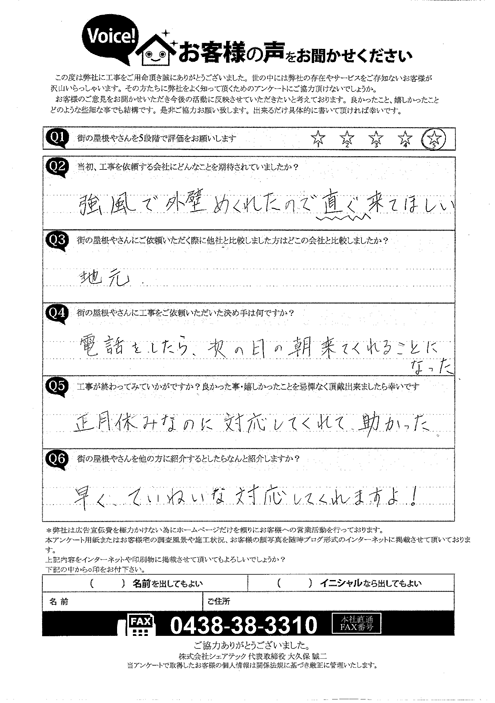 Voice!
お客様の声をお聞かせください
この度は弊社に工事をご用命頂き誠にありがとうございました。世の中には弊社の存在やサービスをご存知ないお客様が
沢山いらっしゃいます。その方たちに弊社をよく知って頂くためのアンケートにご協力頂けないでしょうか。
お客様のご意見をお聞かせいただき今後の活動に反映させていただきたいと考えております。良かったこと、嬉しかったこと
どのような些細な事でも結構です。是非ご協力お願い致します。出来るだけ具体的に書いて頂ければ幸いです。
Q1 街の屋根やさんを5段階で評価をお願いします
Q2 当初、工事を依頼する会社にどんなことを期待されていましたか?
強風で外壁めくれたので直ぐ来てほしい
Q3 街の屋根やさんにご依頼いただく際に他社と比較しました方はどこの会社と比較しましたか?
地元.
Q4 街の屋根やさんに工事をご依頼いただいた決め手は何ですか?
電話をしたら、次の日の朝来てくれることに
なった
Q5 工事が終わってみていかがですか?良かった事・嬉しかったことを忌憚なく頂戴出来ましたら幸いです
正月休みなのに対応してくれて、助かった
Q6 街の屋根やさんを他の方に紹介するとしたらなんと紹介しますか?
早く、ていねいな対応してくれますよ!
＊弊社は広告宣伝費を極力かけない為にホームページだけを頼りにお客様への営業活動を行っております。
本アンケート用紙またはお客様宅の調査風景や施工状況、お客様の顔写真を随時ブログ形式のインターネットに掲載させて頂いておりま
す。
上記内容をインターネットや印刷物に掲載させて頂いてもよろしいでしょうか?
下記の中から○印をお付下さい。
( ) 名前を出してもよい ( ) イニシャルなら出してもよい
名前 ご住所
FAX 0438-38-3310 本社直通 FAX番号
ご協力ありがとうございました。
株式会社シェアテック 代表取締役 大久保 誠二
当アンケートで取得したお客様の個人情報は関係法規に基づき厳正に管理いたします。